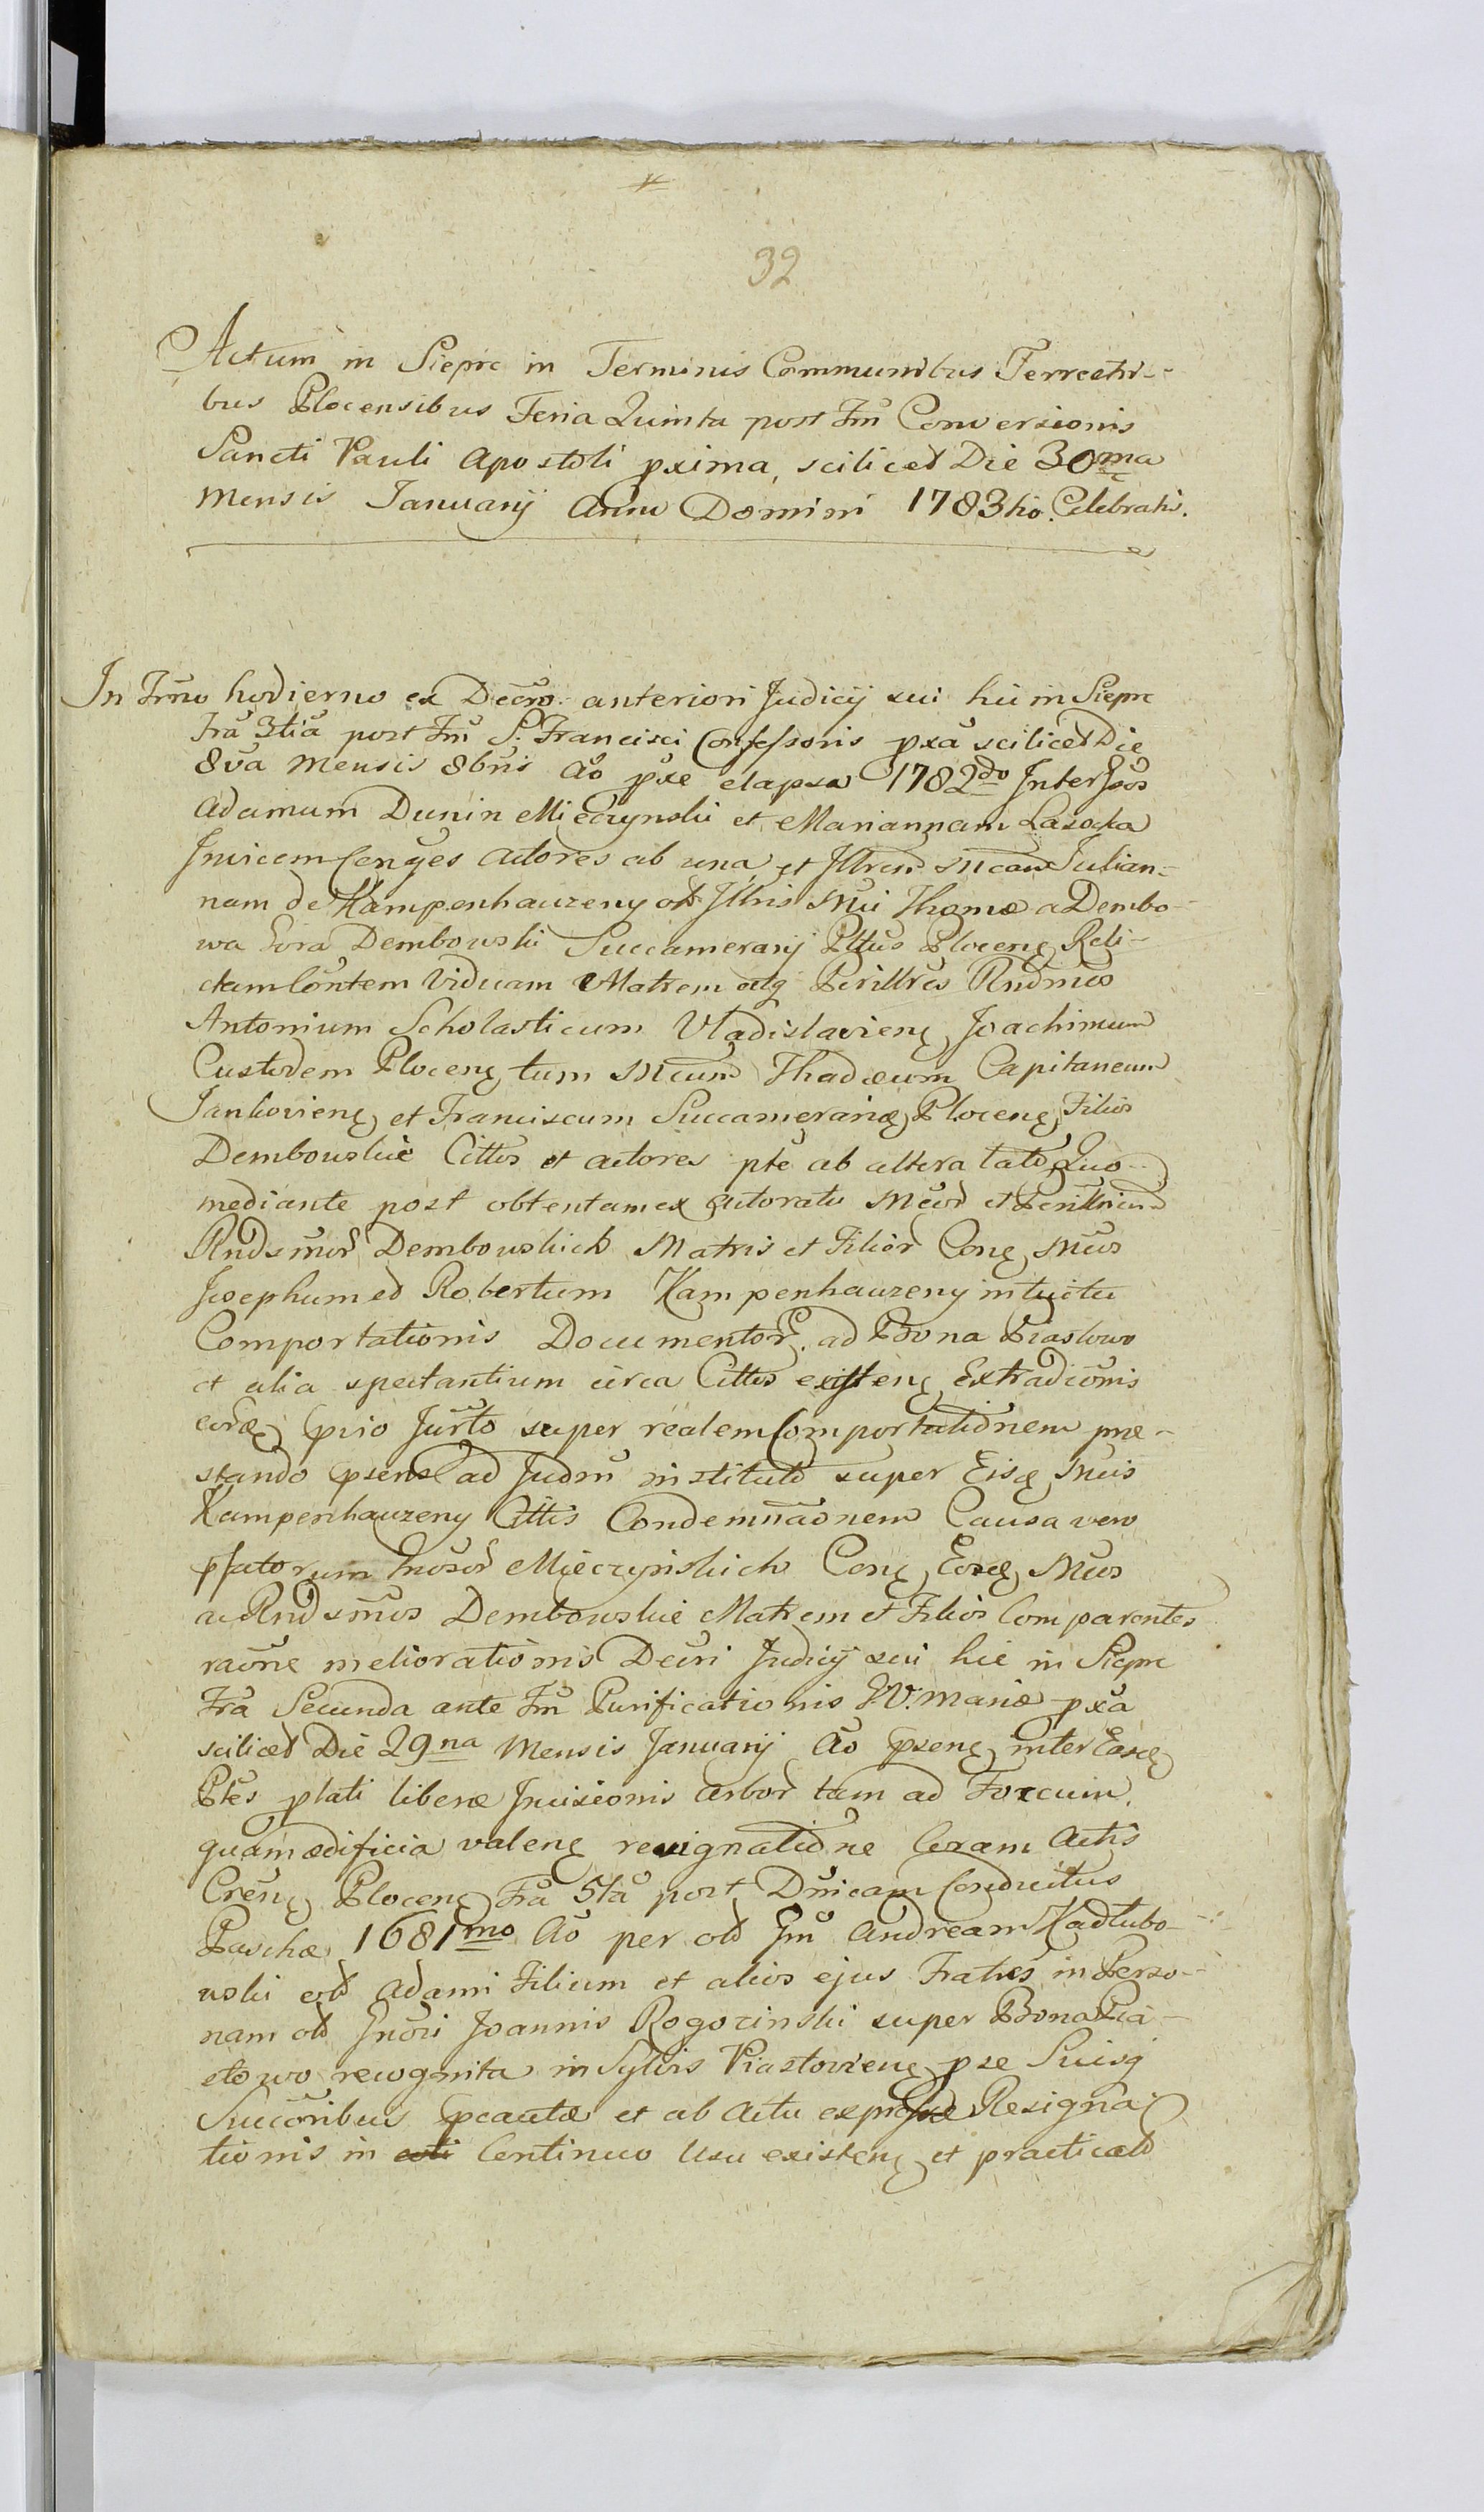 32
Actum in Siepre in Terminis Communibus Terrestri-
bus Plocensibus Feria Quinta post Fm̃ Conversionis
Sancti Pauli Apostoli pxima, scilicet Die 30ma
Mensis Januarij Anno Domini 1783tio. Celebratis.
In Trm̃o hodierno ex Decr̃o anteriori Judicij sui hic in Siepre
Fr̃a 3tia post Fm̃ S. Francisci Confessoris pxa scilicet Die
8va Mensis 8bris Ao pxe elapso 1782do Inter Gsos
Adamum Dunin Mieczynski et Mariannam Lasocka
Invicem Cenges Actores ab una et Illrem Mcam Julian-
nam de Kampenhauzeny olt Illris Mci Thomæ a Dembo-
wa Gora Dembowski Succamerarij Pttus Plocenę Reli-
ctam Cõntem Viduam Matrem atq Perillres Rndmos
Antonium Scholasticum Vladislavienę Joachimum
Custodem Plocenę tum Mcum Thadæum Capitaneum
Jankovienę et Franciscum Succameraridę Plocenę Filios
Dembowskie Cittos et Actores pte ab altera latt Quo
mediante post obtentam ex Actoratu Mcor et Perillrium
Rndsmor Dembowskich Matris et Filior Conę Mcos
Josephum ed Robertum Kampenhauzeny intuitu
Comportationis Documentor ad Bona Piastowo
et alia spectantium circa Cittos existenę Extradicõnis
eordę pvio Jur̃to super realem Comportationem præ-
stando psens ad Judm̃ institutt super Eisdę Mcis
Kampenhauzeny Cittis Condemnãonem Causa vero
pfatorum Gnosor Mieczynskich Conę Eosdę Mcos
ac Rndsmos Dembowskie Matrem et Filios Comparentes
raõne meliorationis Decri Judicij sui hic in Siepre
Fr̃a Secunda ante Fm̃ Purificationis B.V. Mariæ pxa
scilicet Die 29na Mensis Januarij Ao psenę inter Easdę
Ptes plati liberæ Incisionis Arbor tam ad Focum
quam ædificia valenę resignatione Coram Actis
Crẽnę Plocenę Fr̃a 5ta post Dm̃icam Conductus
Paschæ 1681mo Ao per olt Gm̃ Andream Kadlubo-
wski olt Adami Filium et alios ejus Fratres in Perso-
nam olt Gnosi Joannis Rogocinski super Bona Pia-
stowo recognita in Sylvis Piastovienę pse Suisq
Succõribus pcautæ et ab Actu expressæ Resigna-
tionis in Continuo Usu existenę et practicatt